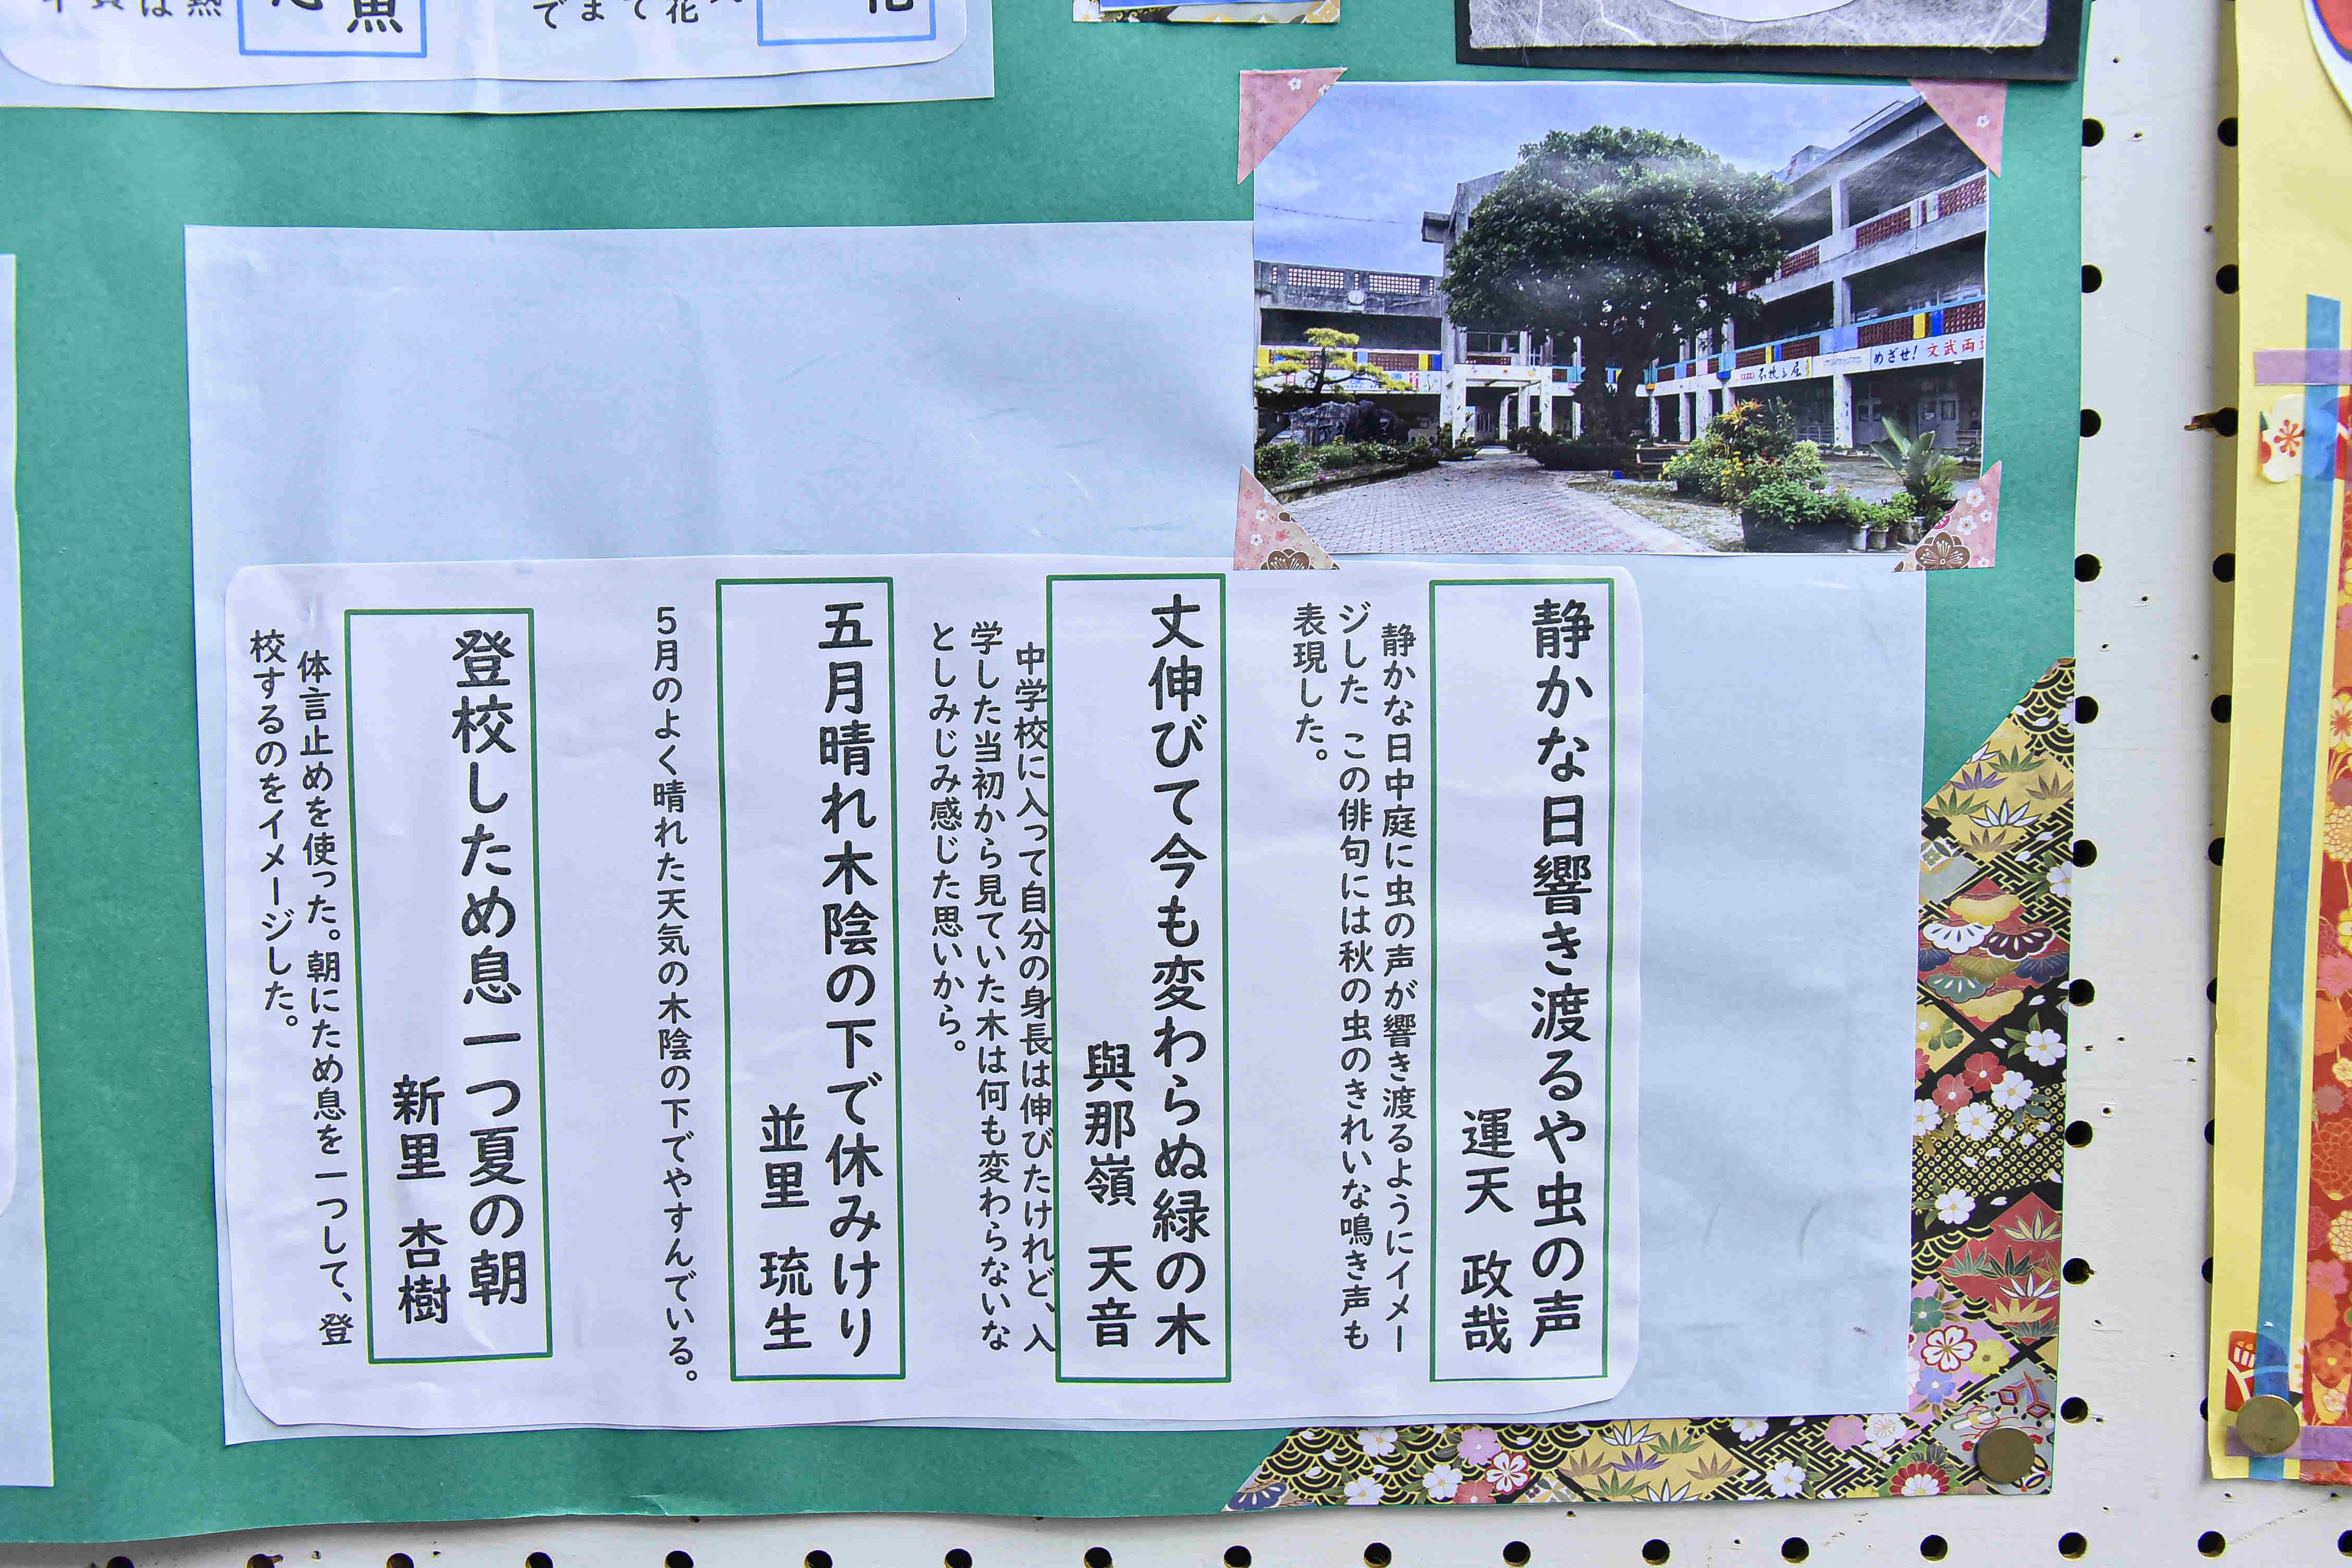 めざせ！文武両道
静かな日響き渡るや虫の声
運天 政哉
静かな日中庭に虫の声が響き渡るようにイメー
ジした この俳句には秋の虫のきれいな鳴き声も
表現した。
丈伸びて今も変わらぬ緑の木
與那嶺 天音
中学校に入って自分の身長は伸びたけれど、入
学した当初から見ていた木は何も変わらないな
としみじみ感じた思いから。
五月晴れ木陰の下で休みけり
並里 琉生
5月のよく晴れた天気の木陰の下でやすんでいる。
登校しため息一つ夏の朝
新里 杏樹
体言止めを使った。朝にため息を一つして、登
校するのをイメージした。